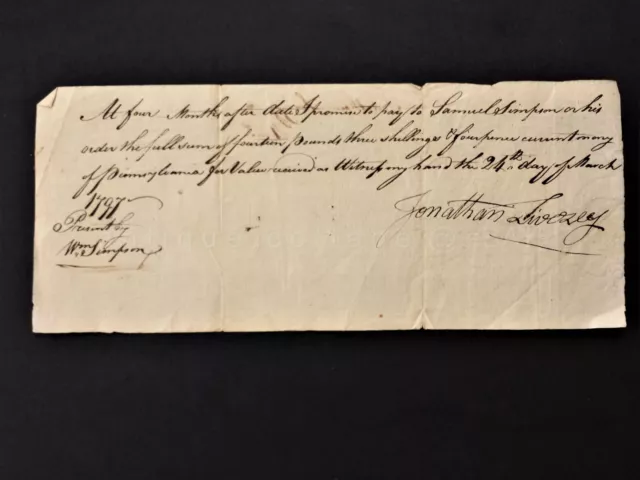 At four Months after date I promise to pay to Samuel Simpson or his
order the full sum of fourteen pounds three shellings & fourpence current mony
of Pinnsylvania for Value received as Witness my hand the 24th day of March
1797
Present by
Wm Simpson
Jonathan Livezey